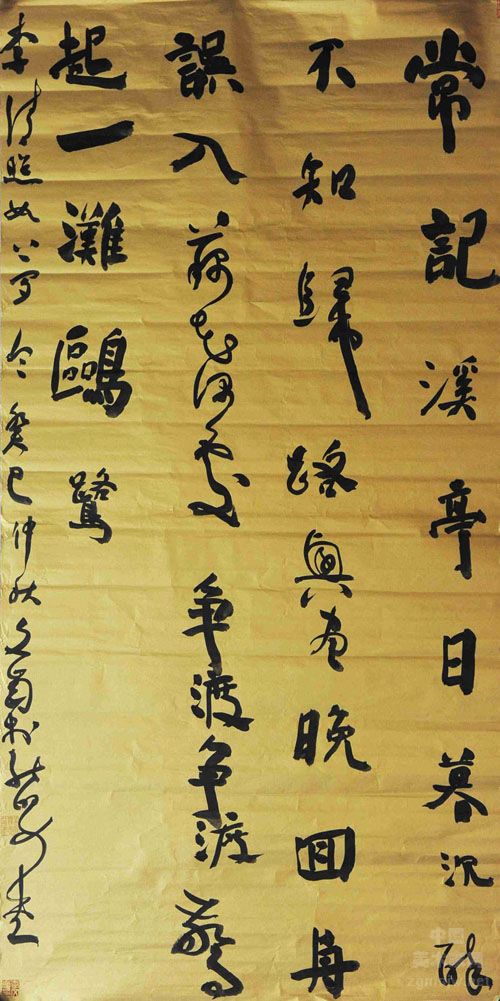 常記溪亭日暮沉醉
不知歸路興尽晚回舟
誤入藕花深處争渡争渡驚
起一灘鷗鷺
李清照如夢令癸巳仲秋